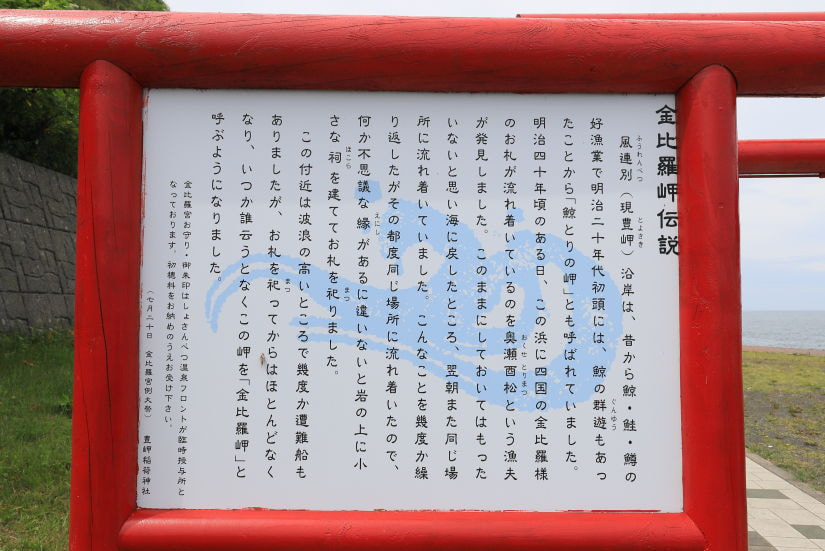 金比羅岬伝説
風連別（現豊岬）沿岸は、昔から鯨・鮭・鱒の
好漁業で明治二十年代初頭には、鯨の群遊もあっ
たことから「鯨とりの岬」とも呼ばれていました。
明治四十年頃のある日、この浜に四国の金比羅様
のお札が流れ着いているのを奥瀬酉松という漁夫
が発見しました。このままにしておいてはもった
いないと思い海に戻したところ、翌朝また同じ場
所に流れ着いていました。こんなことを幾度か繰
り返したがその都度同じ場所に流れ着いたので、
何か不思議な縁があるに違いないと岩の上に小
さな祠を建ててお札を祀りました。
この付近は波浪の高いところで幾度か遭難船も
ありましたが、お札を祀ってからはほとんどなく
なり、いつか誰云うとなくこの岬を「金比羅岬」と
呼ぶようになりました。
金比羅宮お守り・御朱印はしょさんべつ温泉フロントが臨時授与所と
なっております。初穂料をお納めのうえお受け下さい。
（七月二十日 金比羅宮例大祭） 豊岬稲荷神社